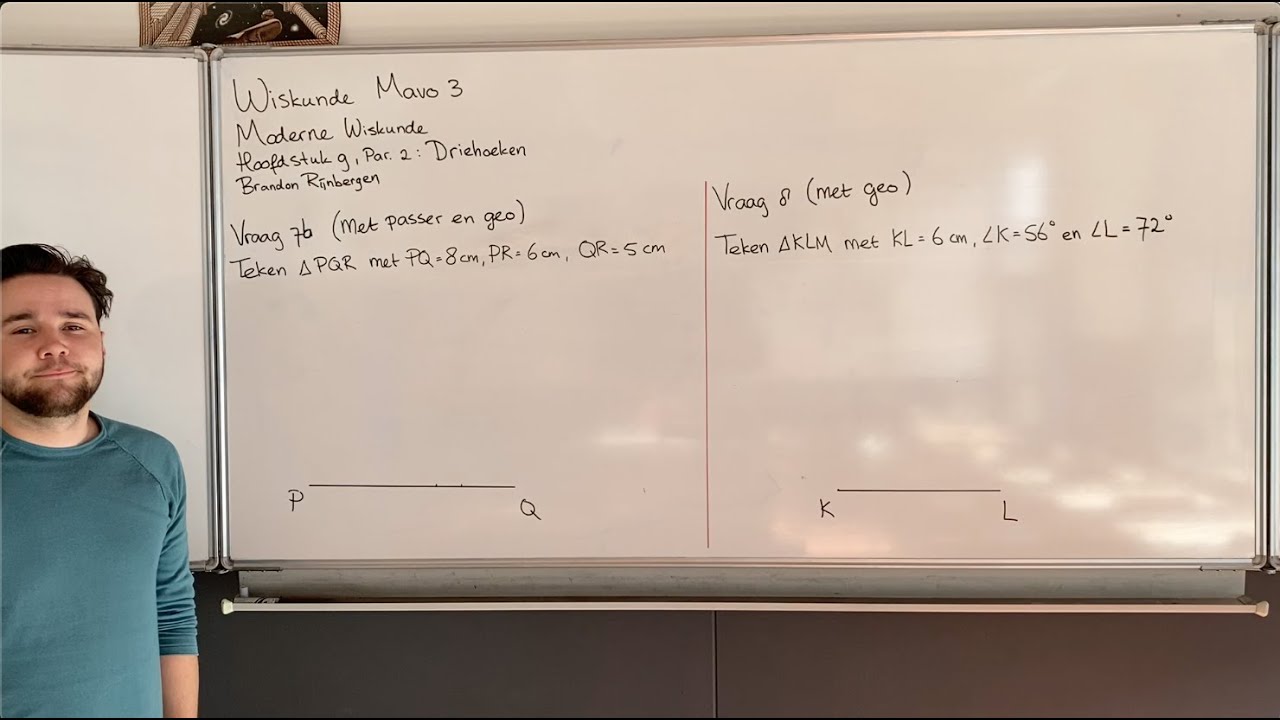 Wiskunde Mavo 3
Moderne Wiskunde
Hoofdstuk 9, Par. 2: Driehoeken
Brandon Rijnbergen
Vraag 7b (Met passer en geo)
Teken △PQR met PQ=8cm, PR=6cm, QR=5cm
P
Q
Vraag 8 (met geo)
Teken △KLM met KL=6cm, ∠K=56° en ∠L=72°
K
L